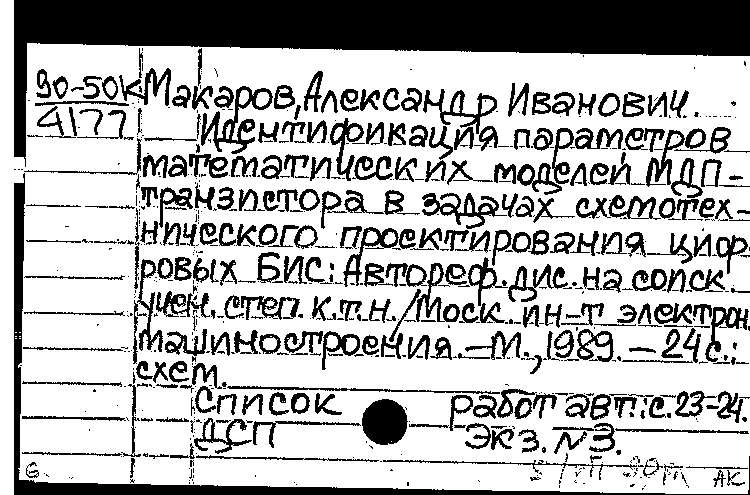 90-50к Макаров, Александр Иванович.
4177 Идентификация параметров
математических моделей МДП-
транзистора в задачах схемотех-
нического проектирования циф-
ровых БИС: Автореф. дис. на соиск.
учен. степ. к.т.н. / Моск. ин-т электрон.
машиностроения. – М., 1989. – 24 с.:
схем.
Список работ авт.: с. 23-24.
ДСП Экз. №3.
6. АК